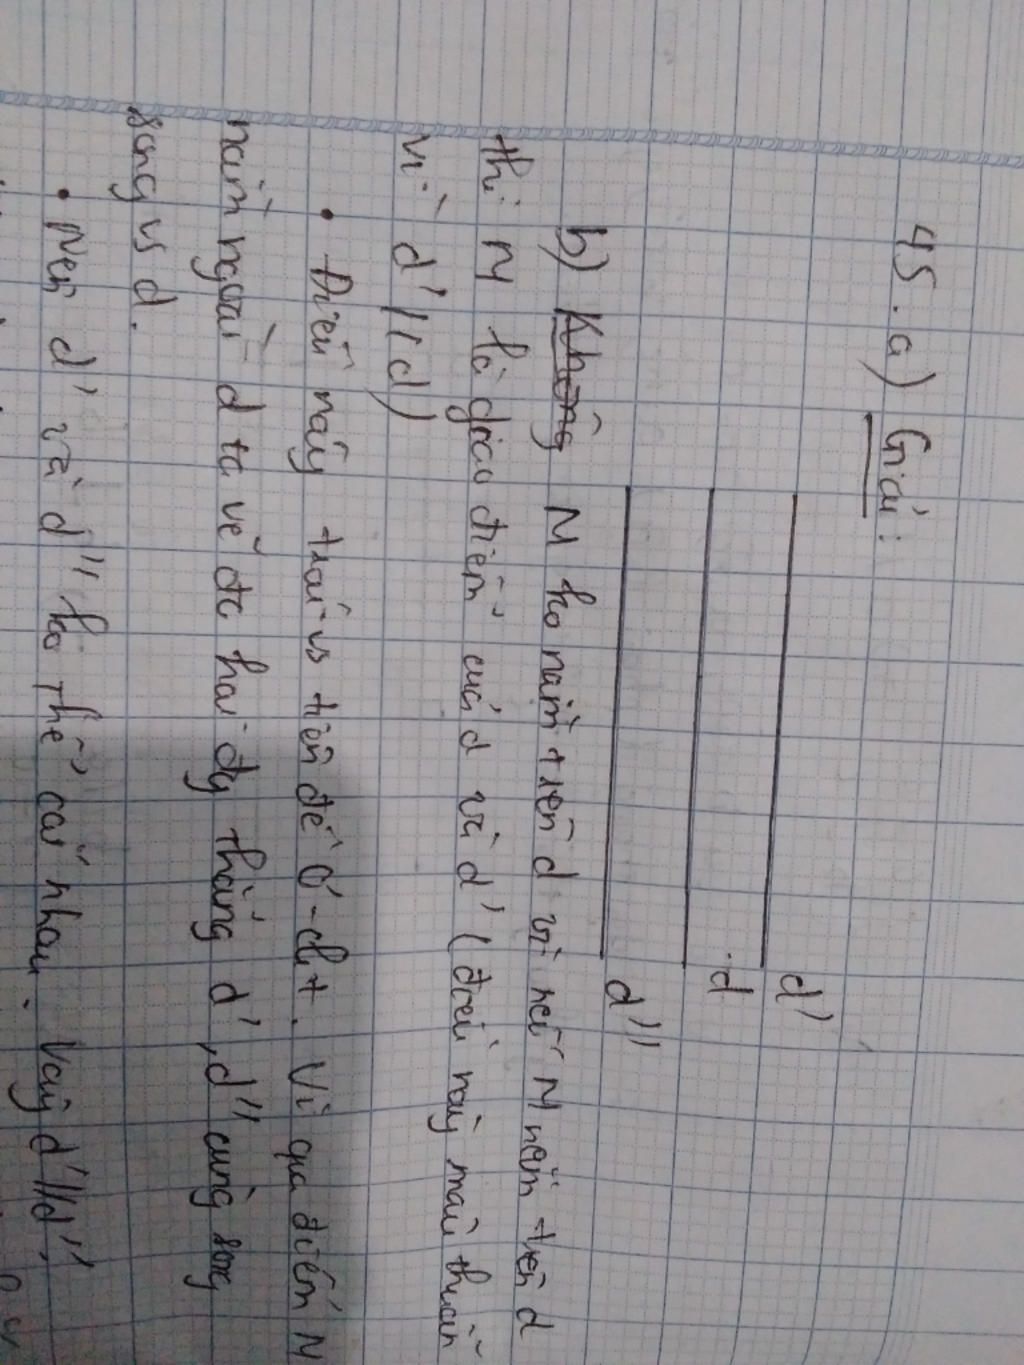 45. a) Giải:
d'
d
d"
b) Không M ko nằm trên d vì nếu M nằm trên d
thì M là giao điểm của d và d' (điều này mâu thuẫn
vì d' // d)
• Điều này trái vs tiên đề Ơ-clit. Vì qua điểm M
nằm ngoài d ta vẽ đc hai đg thẳng d', d" cùng song
song vs d.
• Nên d' và d" ko thể cắt nhau. Vậy d' // d".